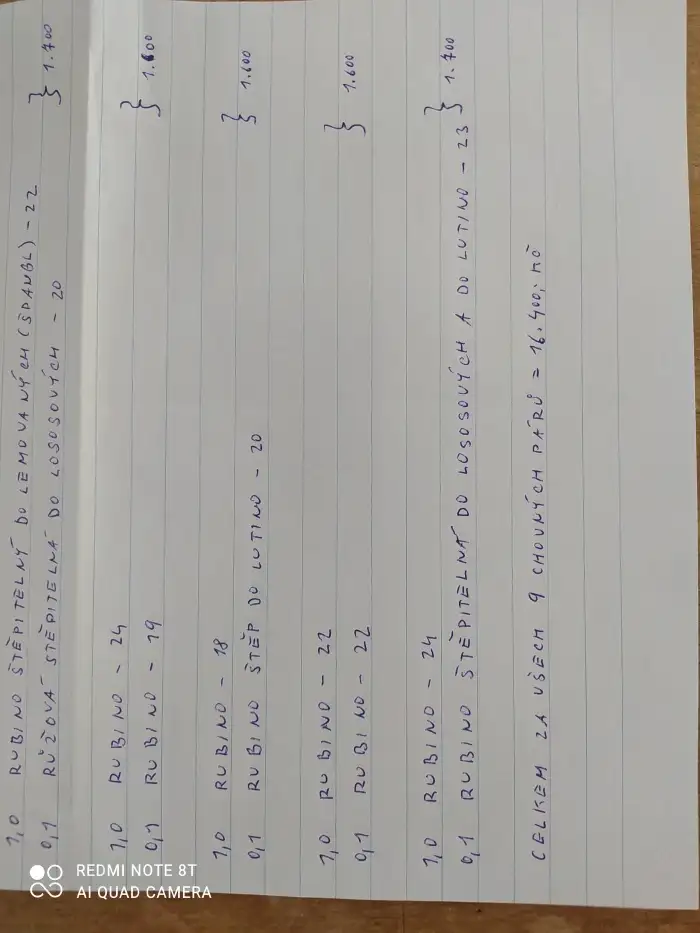 1,0 RUBINO ŠTĚPITELNÝ DO LEMOVANÝCH (ŠPANBL) - 22
0,1 RŮŽOVÁ ŠTĚPITELNÁ DO LOSOSOVÝCH - 20 } 1.700
1,0 RUBINO - 24
0,1 RUBINO - 19 } 1.600
1,0 RUBINO - 18
0,1 RUBINO ŠTĚP DO LUTINO - 20 } 1.600
1,0 RUBINO - 22
0,1 RUBINO - 22 } 1.600
1,0 RUBINO - 24
0,1 RUBINO ŠTĚPITELNÁ DO LOSOSOVÝCH A DO LUTINO - 23 } 1.700
CELKEM ZA VŠECH 9 CHOVNÝCH PÁRŮ = 16.400,- KČ
REDMI NOTE 8T
AI QUAD CAMERA